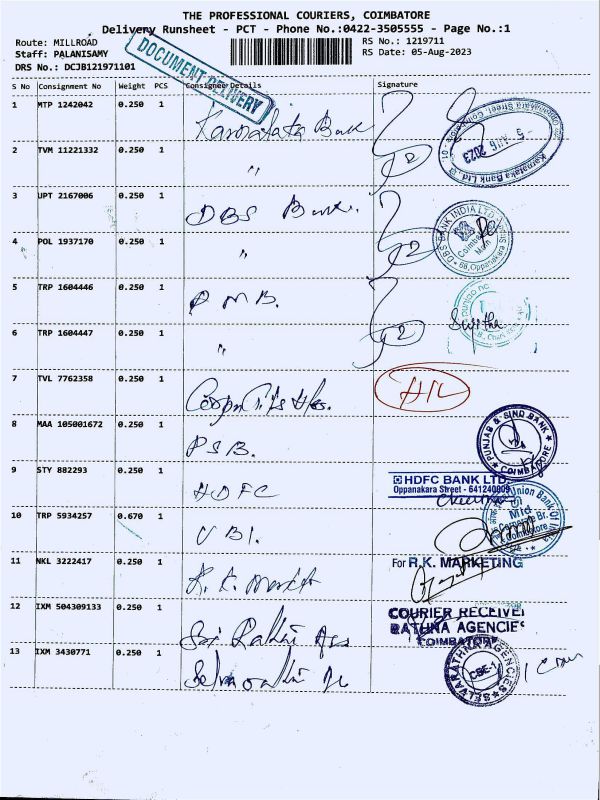 THE PROFESSIONAL COURIERS, COIMBATORE
Delivery Runsheet - PCT - Phone No.:0422-3505555 - Page No.:1
Route: MILLROAD
RS No.: 1219711
Staff: PALANISAMY
RS Date: 05-Aug-2023
DRS No.: DCJB121971101
DOCUMENT DELIVERY
S No Consignment No Weight PCS Consignee Details Signature
1 MTP 1242042 0.250 1 Karnataka Bank
Karnataka Bank Ltd.
5 AUG 2023
2 TVM 11221332 0.250 1 〃
3 UPT 2167006 0.250 1 DBS Bank.
DBS BANK INDIA LTD
4 POL 1937170 0.250 1 〃
5 TRP 1604446 0.250 1 PNB.
Sujitha
6 TRP 1604447 0.250 1 〃
7 TVL 7762358 0.250 1
8 MAA 105001672 0.250 1 PSB.
PUNJAB & SIND BANK
COIMBATORE
9 STY 882293 0.250 1 HDFC
HDFC BANK LTD.
Oppanakara Street - 641240009
10 TRP 5934257 0.670 1 UBI.
Union Bank Of
11 NKL 3222417 0.250 1
For R.K. MARKETING
12 IXM 504309133 0.250 1 Sri Rathna Ags
COURIER RECEIVE
RATHNA AGENCIES
COIMBATORE
13 IXM 3430771 0.250 1
SELVARATHNA AGENCIES
CBE-1